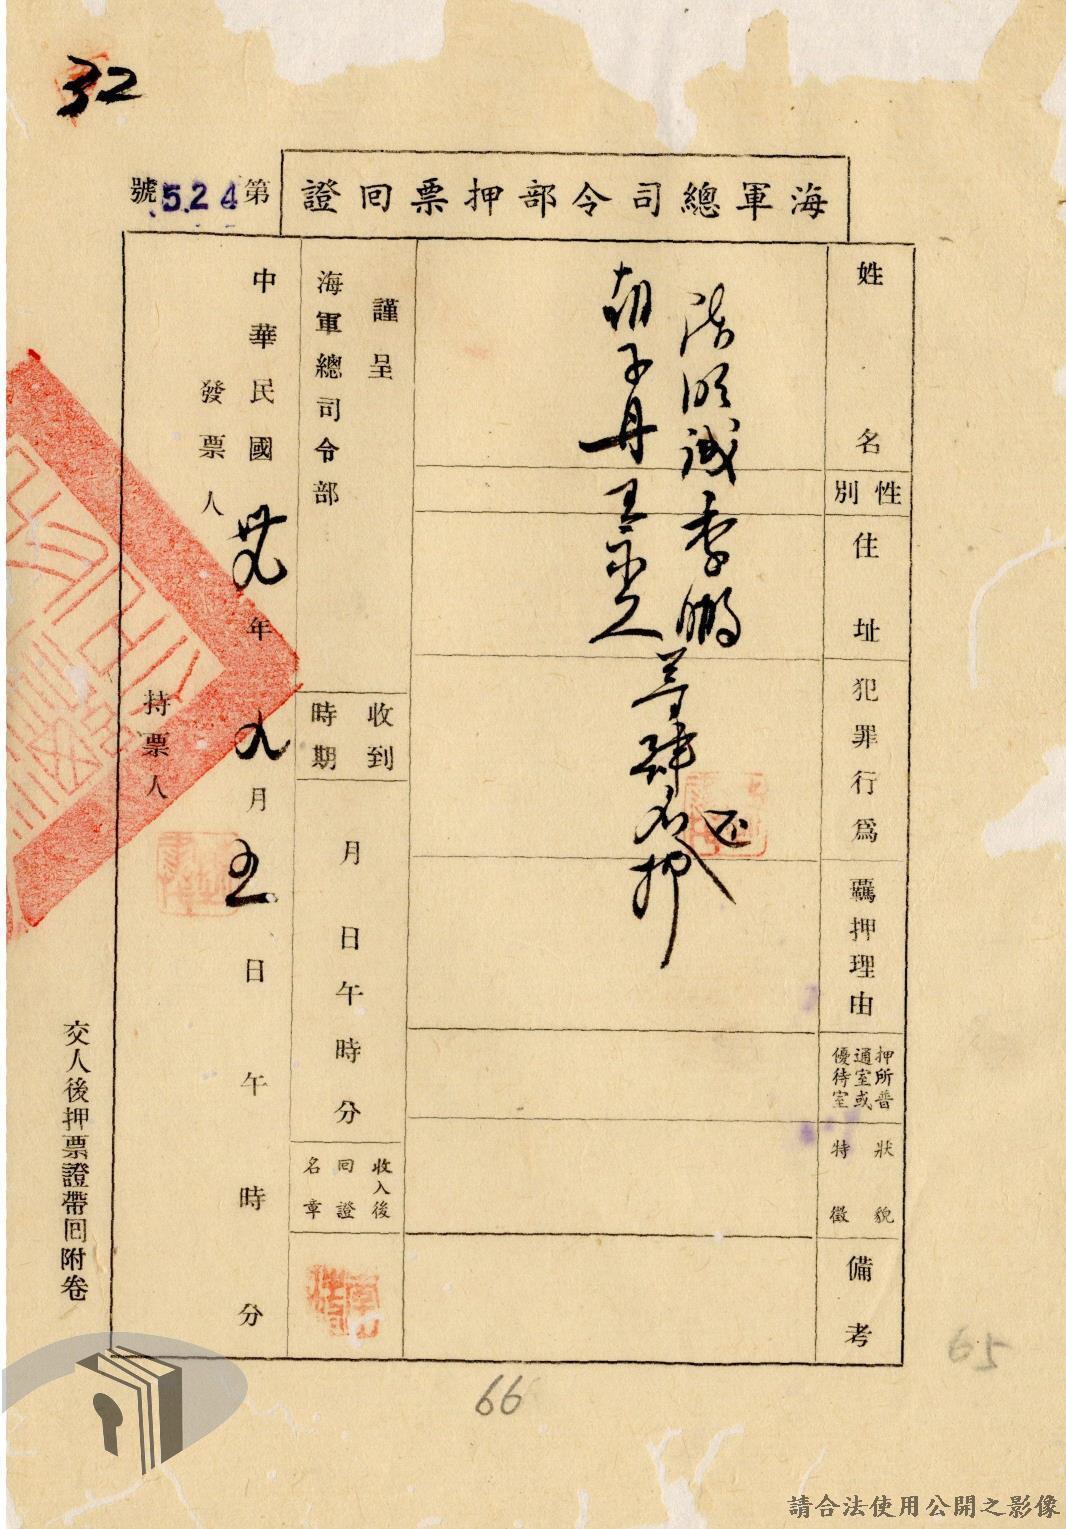 32
海軍總司令部押票回證
第524號
姓名
性別
住址
犯罪行為
羈押理由
押所普通室或優待室
狀貌特徵
備考
誠李鵬
胡子丹王
等肆名押
謹呈
海軍總司令部
收到時期
月日午時分
收入後回證名章
中華民國卅九年九月五日午時分
發票人
持票人
交人後押票證帶回附卷
66
65
請合法使用公開之影像